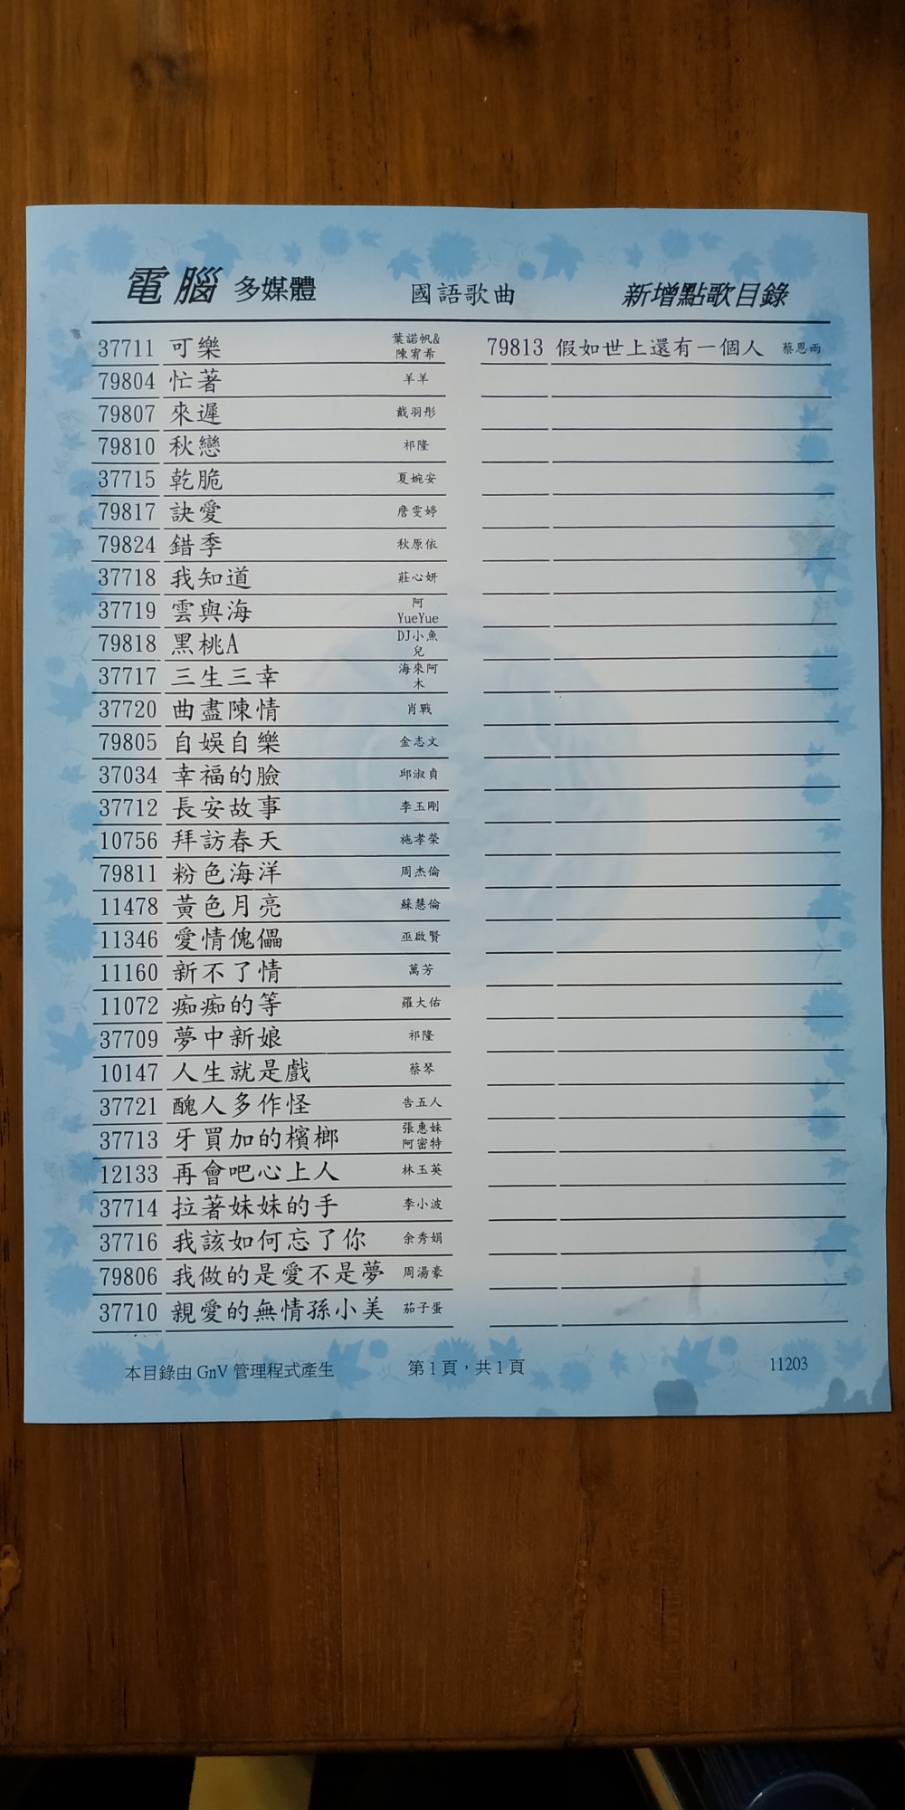 電腦 多媒體 國語歌曲 新增點歌目錄
37711 可樂 葉諾帆&陳宥希
79804 忙著 羊羊
79807 來遲 戴羽彤
79810 秋戀 祁隆
37715 乾脆 夏婉安
79817 訣愛 詹雯婷
79824 錯季 秋原依
37718 我知道 莊心妍
37719 雲與海 阿YueYue
79818 黑桃A DJ小魚兒
37717 三生三幸 海來阿木
37720 曲盡陳情 肖戰
79805 自娛自樂 金志文
37034 幸福的臉 邱淑貞
37712 長安故事 李玉剛
10756 拜訪春天 施孝榮
79811 粉色海洋 周杰倫
11478 黃色月亮 蘇慧倫
11346 愛情傀儡 巫啟賢
11160 新不了情 萬芳
11072 痴痴的等 羅大佑
37709 夢中新娘 祁隆
10147 人生就是戲 蔡琴
37721 醜人多作怪 告五人
37713 牙買加的檳榔 張惠妹 阿密特
12133 再會吧心上人 林玉英
37714 拉著妹妹的手 李小波
37716 我該如何忘了你 余秀娟
79806 我做的是愛不是夢 周湯豪
37710 親愛的無情孫小美 茄子蛋
79813 假如世上還有一個人 蔡恩雨
本目錄由 GnV 管理程式產生 第1頁，共1頁 11203